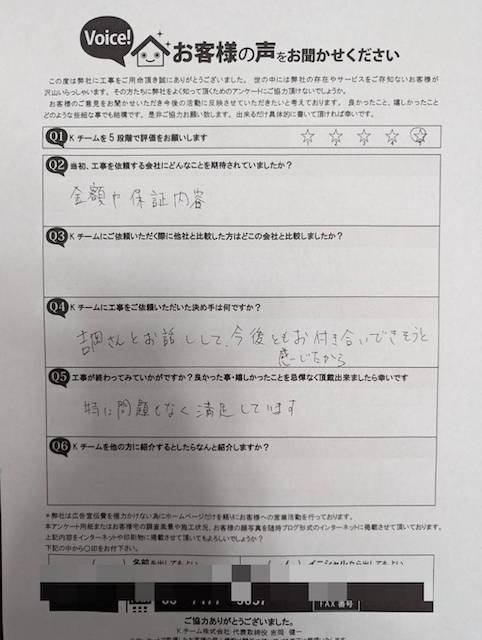 Voice!
お客様の声をお聞かせください
この度は弊社に工事をご用命頂き誠にありがとうございました。世の中には弊社の存在やサービスをご存知ないお客様が
沢山いらっしゃいます。その方たちに弊社をよく知って頂くためのアンケートにご協力頂けないでしょうか。
お客様のご意見をお聞かせいただき今後の活動に反映させていただきたいと考えております。良かったこと、嬉しかったこと
どのような些細な事でも結構です。是非ご協力お願い致します。出来るだけ具体的に書いて頂ければ幸いです。
Q1 Kチームを5段階で評価をお願いします ☆ ☆ ☆ ☆ ☆
Q2 当初、工事を依頼する会社にどんなことを期待されていましたか?
金額や保証内容
Q3 Kチームにご依頼いただく際に他社と比較した方はどこの会社と比較しましたか?
Q4 Kチームに工事をご依頼いただいた決め手は何ですか?
吉岡さんとお話しして、今後ともお付き合いできそうと
感じたから
Q5 工事が終わってみていかがですか?良かった事・嬉しかったことを忌憚なく頂戴出来ましたら幸いです
特に問題もなく満足しています
Q6 Kチームを他の方に紹介するとしたらなんと紹介しますか?
*弊社は広告宣伝費を極力かけない為にホームページだけを頼りにお客様への営業活動を行っております。
本アンケート用紙またはお客様宅の調査風景や施工状況、お客様の顔写真を随時ブログ形式のインターネットに掲載させて頂いております。
上記内容をインターネットや印刷物に掲載させて頂いてもよろしいでしょうか?
下記の中から〇印をお付下さい。
( ) 名前を出してもよい ( ) イニシャルなら出してもよい
FAX番号
ご協力ありがとうございました。
Kチーム株式会社 代表取締役 吉岡 健一